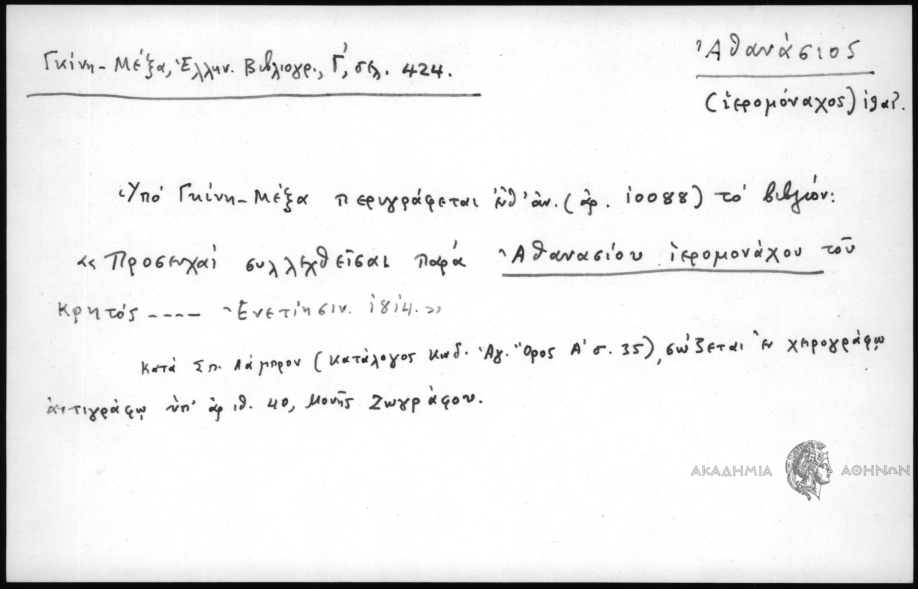 Γκίνη - Μέξα, Ἑλλην. Βιβλιογρ., Γ', σελ. 424.
Ἀθανάσιος
(ἱερομόναχος) ιθ' αἰ.
Ὑπό Γκίνη - Μέξα περιγράφεται ὑπ' ἀρ. (ἀρ. 10088) τό βιβλίον:
«Προσευχαί συλλεχθεῖσαι παρά Ἀθανασίου ἱερομονάχου τοῦ
Κρητός ---- Ἐνετίησιν. 1814.»
Κατά Σπ. Λάμπρον (Κατάλογος Κωδ. Ἁγ. Ὄρος Α' σ. 35), σώζεται ἐν χειρογράφῳ
ἀντιγράφῳ ὑπ' ἀριθ. 40, Μονῆς Ζωγράφου.
ΑΚΑΔΗΜΙΑ ΑΘΗΝΩΝ